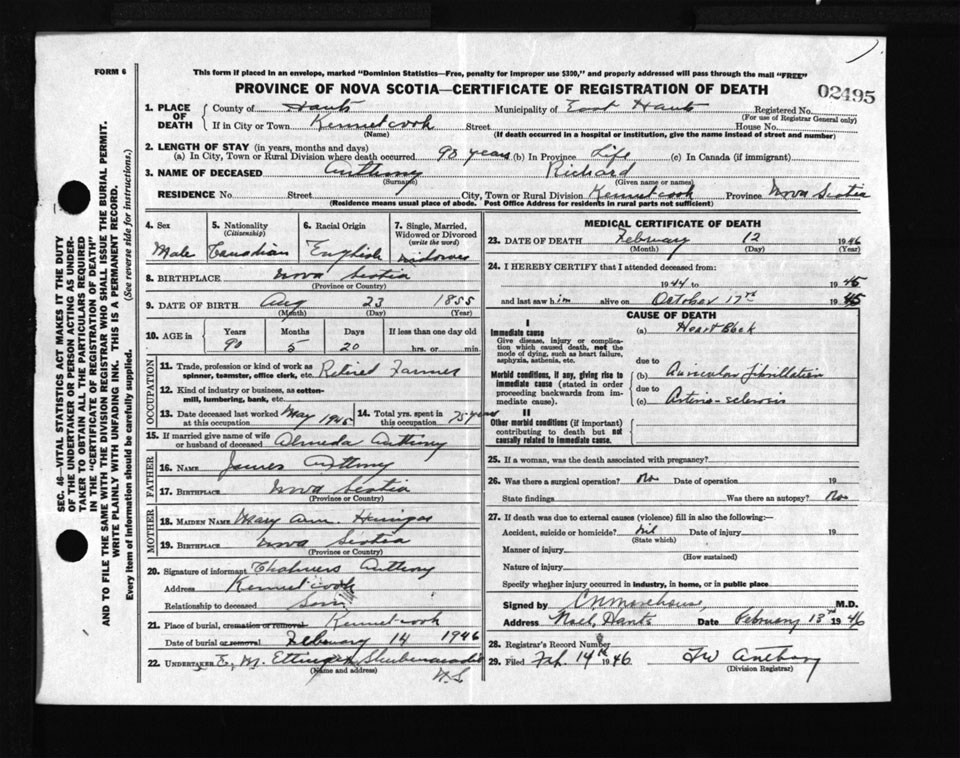 FORM 6
This form if placed in an envelope, marked "Dominion Statistics—Free, penalty for improper use $300," and properly addressed will pass through the mail "FREE"
PROVINCE OF NOVA SCOTIA—CERTIFICATE OF REGISTRATION OF DEATH
02495
1. PLACE OF DEATH { County of Hants Municipality of East Hants Registered No.
(For use of Registrar General only)
If in City or Town Kennetcook Street House No.
(Name) (If death occurred in a hospital or institution, give the name instead of street and number)
2. LENGTH OF STAY (in years, months and days)
(a) In City, Town or Rural Division where death occurred 90 years (b) In Province Life (c) In Canada (if immigrant)
3. NAME OF DECEASED Anthony Richard
(Surname) (Given name or names)
RESIDENCE No. Street City, Town or Rural Division Kennetcook Province Nova Scotia
(Residence means usual place of abode. Post Office Address for residents in rural parts not sufficient)
4. Sex 5. Nationality (Citizenship) 6. Racial Origin 7. Single, Married, Widowed or Divorced (write the word)
Male Canadian English Widower
8. BIRTHPLACE Nova Scotia
(Province or Country)
9. DATE OF BIRTH Aug 23 1855
(Month) (Day) (Year)
10. AGE in Years Months Days If less than one day old
90 5 20 hrs. or min.
OCCUPATION
11. Trade, profession or kind of work as spinner, teamster, office clerk, etc. Retired Farmer
12. Kind of industry or business, as cotton-mill, lumbering, bank, etc.
13. Date deceased last worked at this occupation May 1945 14. Total yrs. spent in this occupation 75 years
15. If married give name of wife or husband of deceased Almeda Anthony
FATHER
16. NAME James Anthony
17. BIRTHPLACE Nova Scotia
(Province or Country)
MOTHER
18. MAIDEN NAME Mary Ann
19. BIRTHPLACE Nova Scotia
(Province or Country)
20. Signature of informant Chalmers Anthony
Address Kennetcook
Relationship to deceased Son
21. Place of burial, cremation or removal Kennetcook
Date of burial or removal February 14 1946
22. UNDERTAKER E. M. Ettinger Shubenacadie
(Name and address) N.S
MEDICAL CERTIFICATE OF DEATH
23. DATE OF DEATH February 12 1946
(Month) (Day) (Year)
24. I HEREBY CERTIFY that I attended deceased from:
1944 to 1945
and last saw him alive on October 17th 1945
CAUSE OF DEATH
I
Immediate cause (a) Heart Block
Give disease, injury or complication which caused death, not the mode of dying, such as heart failure, asphyxia, asthenia, etc.
due to
Morbid conditions, if any, giving rise to immediate cause (stated in order proceeding backwards from immediate cause). (b) Auricular fibrillation
due to
(c) Arterio-sclerosis
II
Other morbid conditions (if important) contributing to death but not causally related to immediate cause.
25. If a woman, was the death associated with pregnancy?
26. Was there a surgical operation? No Date of operation 19
State findings Was there an autopsy? No
27. If death was due to external causes (violence) fill in also the following:—
Accident, suicide or homicide? nil Date of injury 19
(State which)
Manner of injury
(How sustained)
Nature of injury
Specify whether injury occurred in industry, in home, or in public place
Signed by C N Morehouse, M.D.
Address Noel, Hants Date February 13th 1946
28. Registrar's Record Number
29. Filed Feb. 14th 1946 Anthony
(Division Registrar)
SEC. 46—VITAL STATISTICS ACT MAKES IT THE DUTY
OF THE UNDERTAKER OR PERSON ACTING AS UNDER-
TAKER TO OBTAIN ALL THE PARTICULARS REQUIRED
IN THE "CERTIFICATE OF REGISTRATION OF DEATH"
AND TO FILE THE SAME WITH THE DIVISION REGISTRAR WHO SHALL ISSUE THE BURIAL PERMIT.
WRITE PLAINLY WITH UNFADING INK. THIS IS A PERMANENT RECORD.
Every item of information should be carefully supplied. (See reverse side for instructions.)